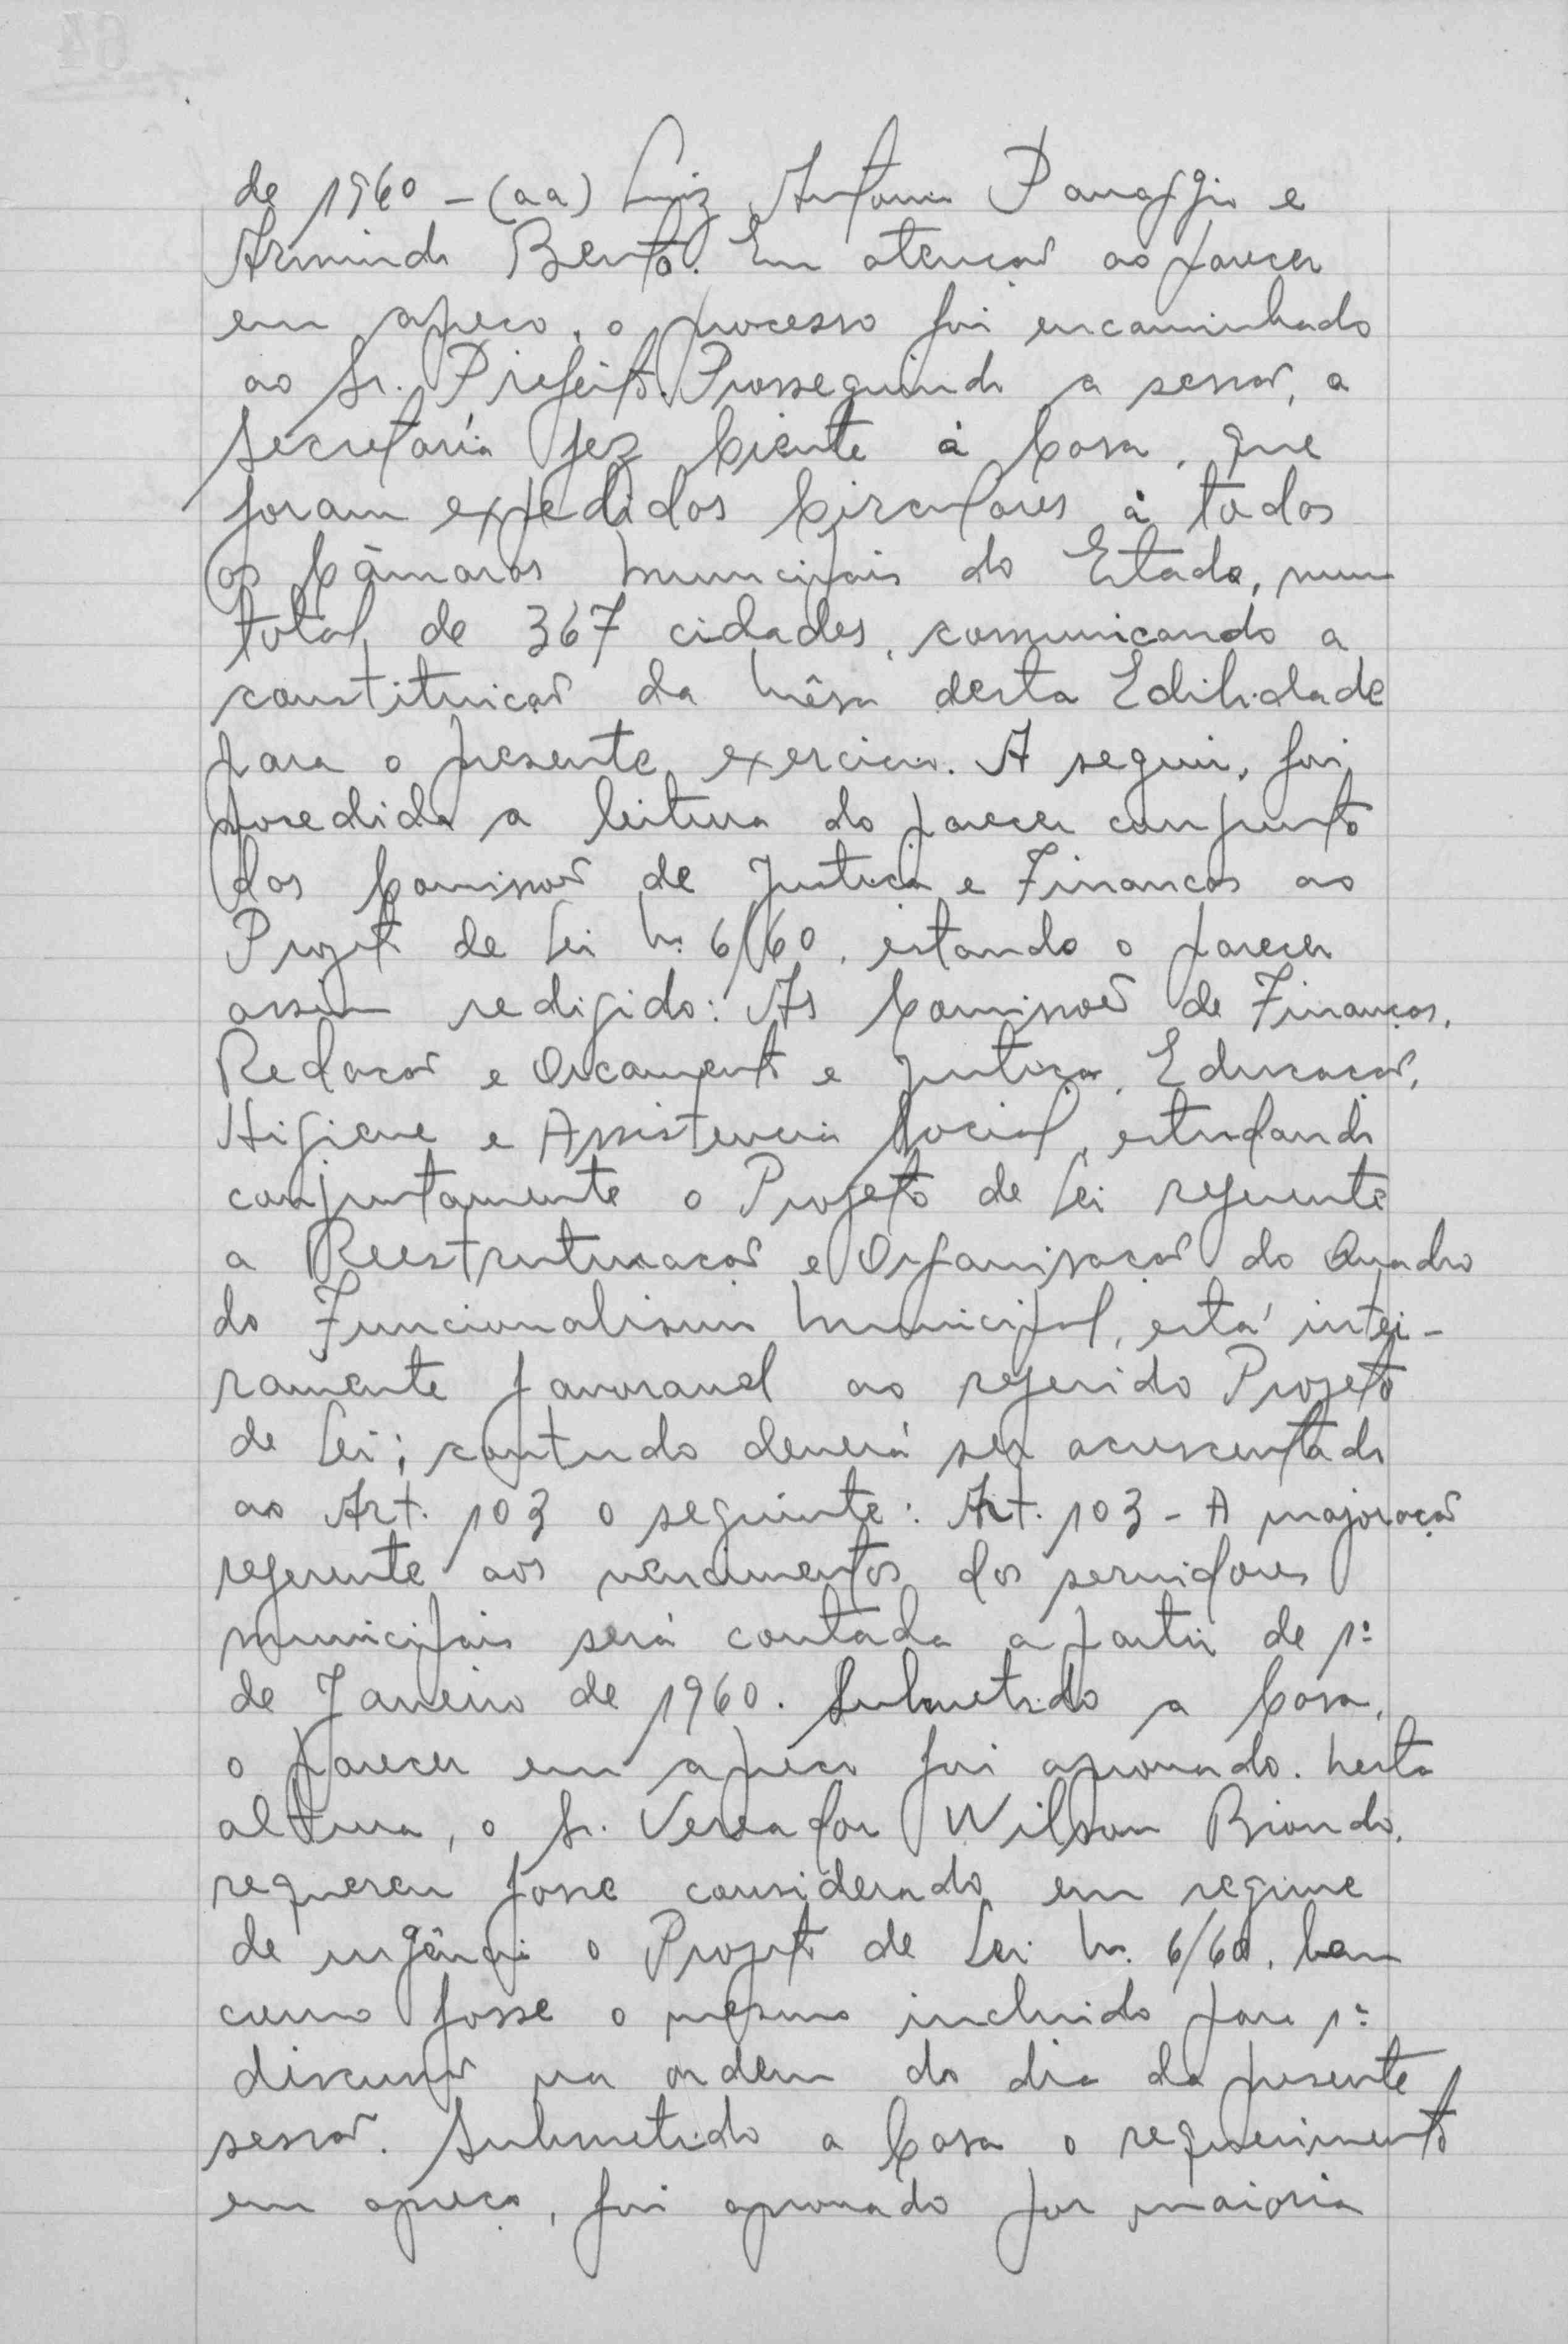 de 1960 - (aa) Luiz Antonio Panaggio e
Armindo Bento. Em atenção ao parecer
em apreço, o processo foi encaminhado
ao Sr. Prefeito. Prosseguindo a sessão, a
Secretaria fez ciente à Casa, que
foram expedidas circulares à todas
as Câmaras Municipais do Estado, num
total de 367 cidades, comunicando a
constituição da Mêsa desta Edilidade
para o presente exercicio. A seguir, foi
procedida a leitura do parecer conjunto
das Comissões de Justiça e Finanças ao
Projeto de Lei n. 6/60, estando o parecer
assim redigido: As Comissões de Finanças,
Redação e Orçamento e Justiça, Educação,
Higiene e Assistencia Social, estudando
conjuntamente o Projeto de Lei referente
a Reestruturação e Organisação do Quadro
do Funcionalismo Municipal, está intei-
ramente favoravel ao referido Projeto
de Lei; contudo deverá ser acrescentado
ao Art. 103 o seguinte: Art. 103 - A majoração
referente aos vencimentos dos servidores
municipais será contada a partir de 1º
de Janeiro de 1960. Submetido a Casa,
o parecer em apreço foi aprovado. Nesta
altura, o Sr. Vereador Wilson Biondo,
requereu fosse considerado em regime
de urgência o Projeto de Lei n. 6/60, bem
como fosse o mesmo incluido para 1ª
discussão na ordem do dia da presente
sessão. Submetido a Casa o requerimento
em apreço, foi aprovado por maioria